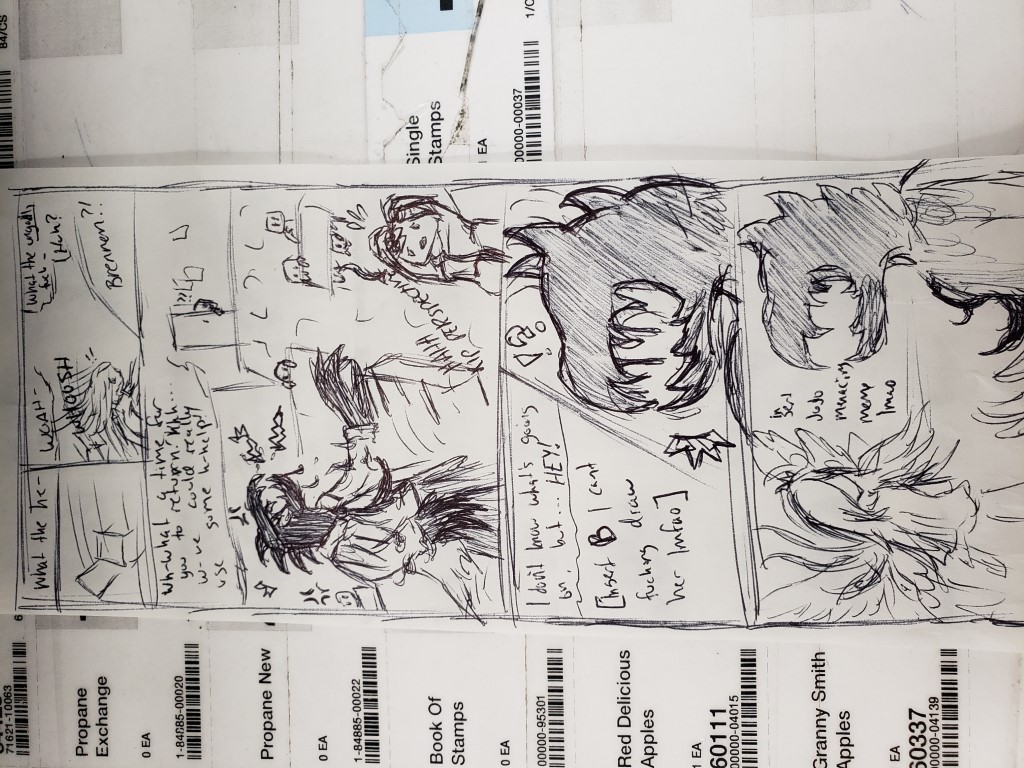 71621-10063
6
84/CS
Propane
Exchange
0 EA
1-84885-00020
Propane New
0 EA
1-84885-00022
Book Of
Stamps
0 EA
00000-95301
Red Delicious
Apples
1 EA
60111
00000-04015
Granny Smith
Apples
EA
60337
00000-04139
Single
Stamps
EA
00000-00037
1/C
What the he-
WOAH-
WHOOSH
What the ungodly
fuck-
Huh?
Brennen?!
Wh-what a time for
you to return! Hhh...
w-we could really
use some h-help!!
?!
HAHA
RIP PERSPECTIVE
I don't know what's going
on, but... HEY!
!?
[Insert B I cant
fucking draw
her lmfao]
in
sert
JoJo
menacing
meme
lmao